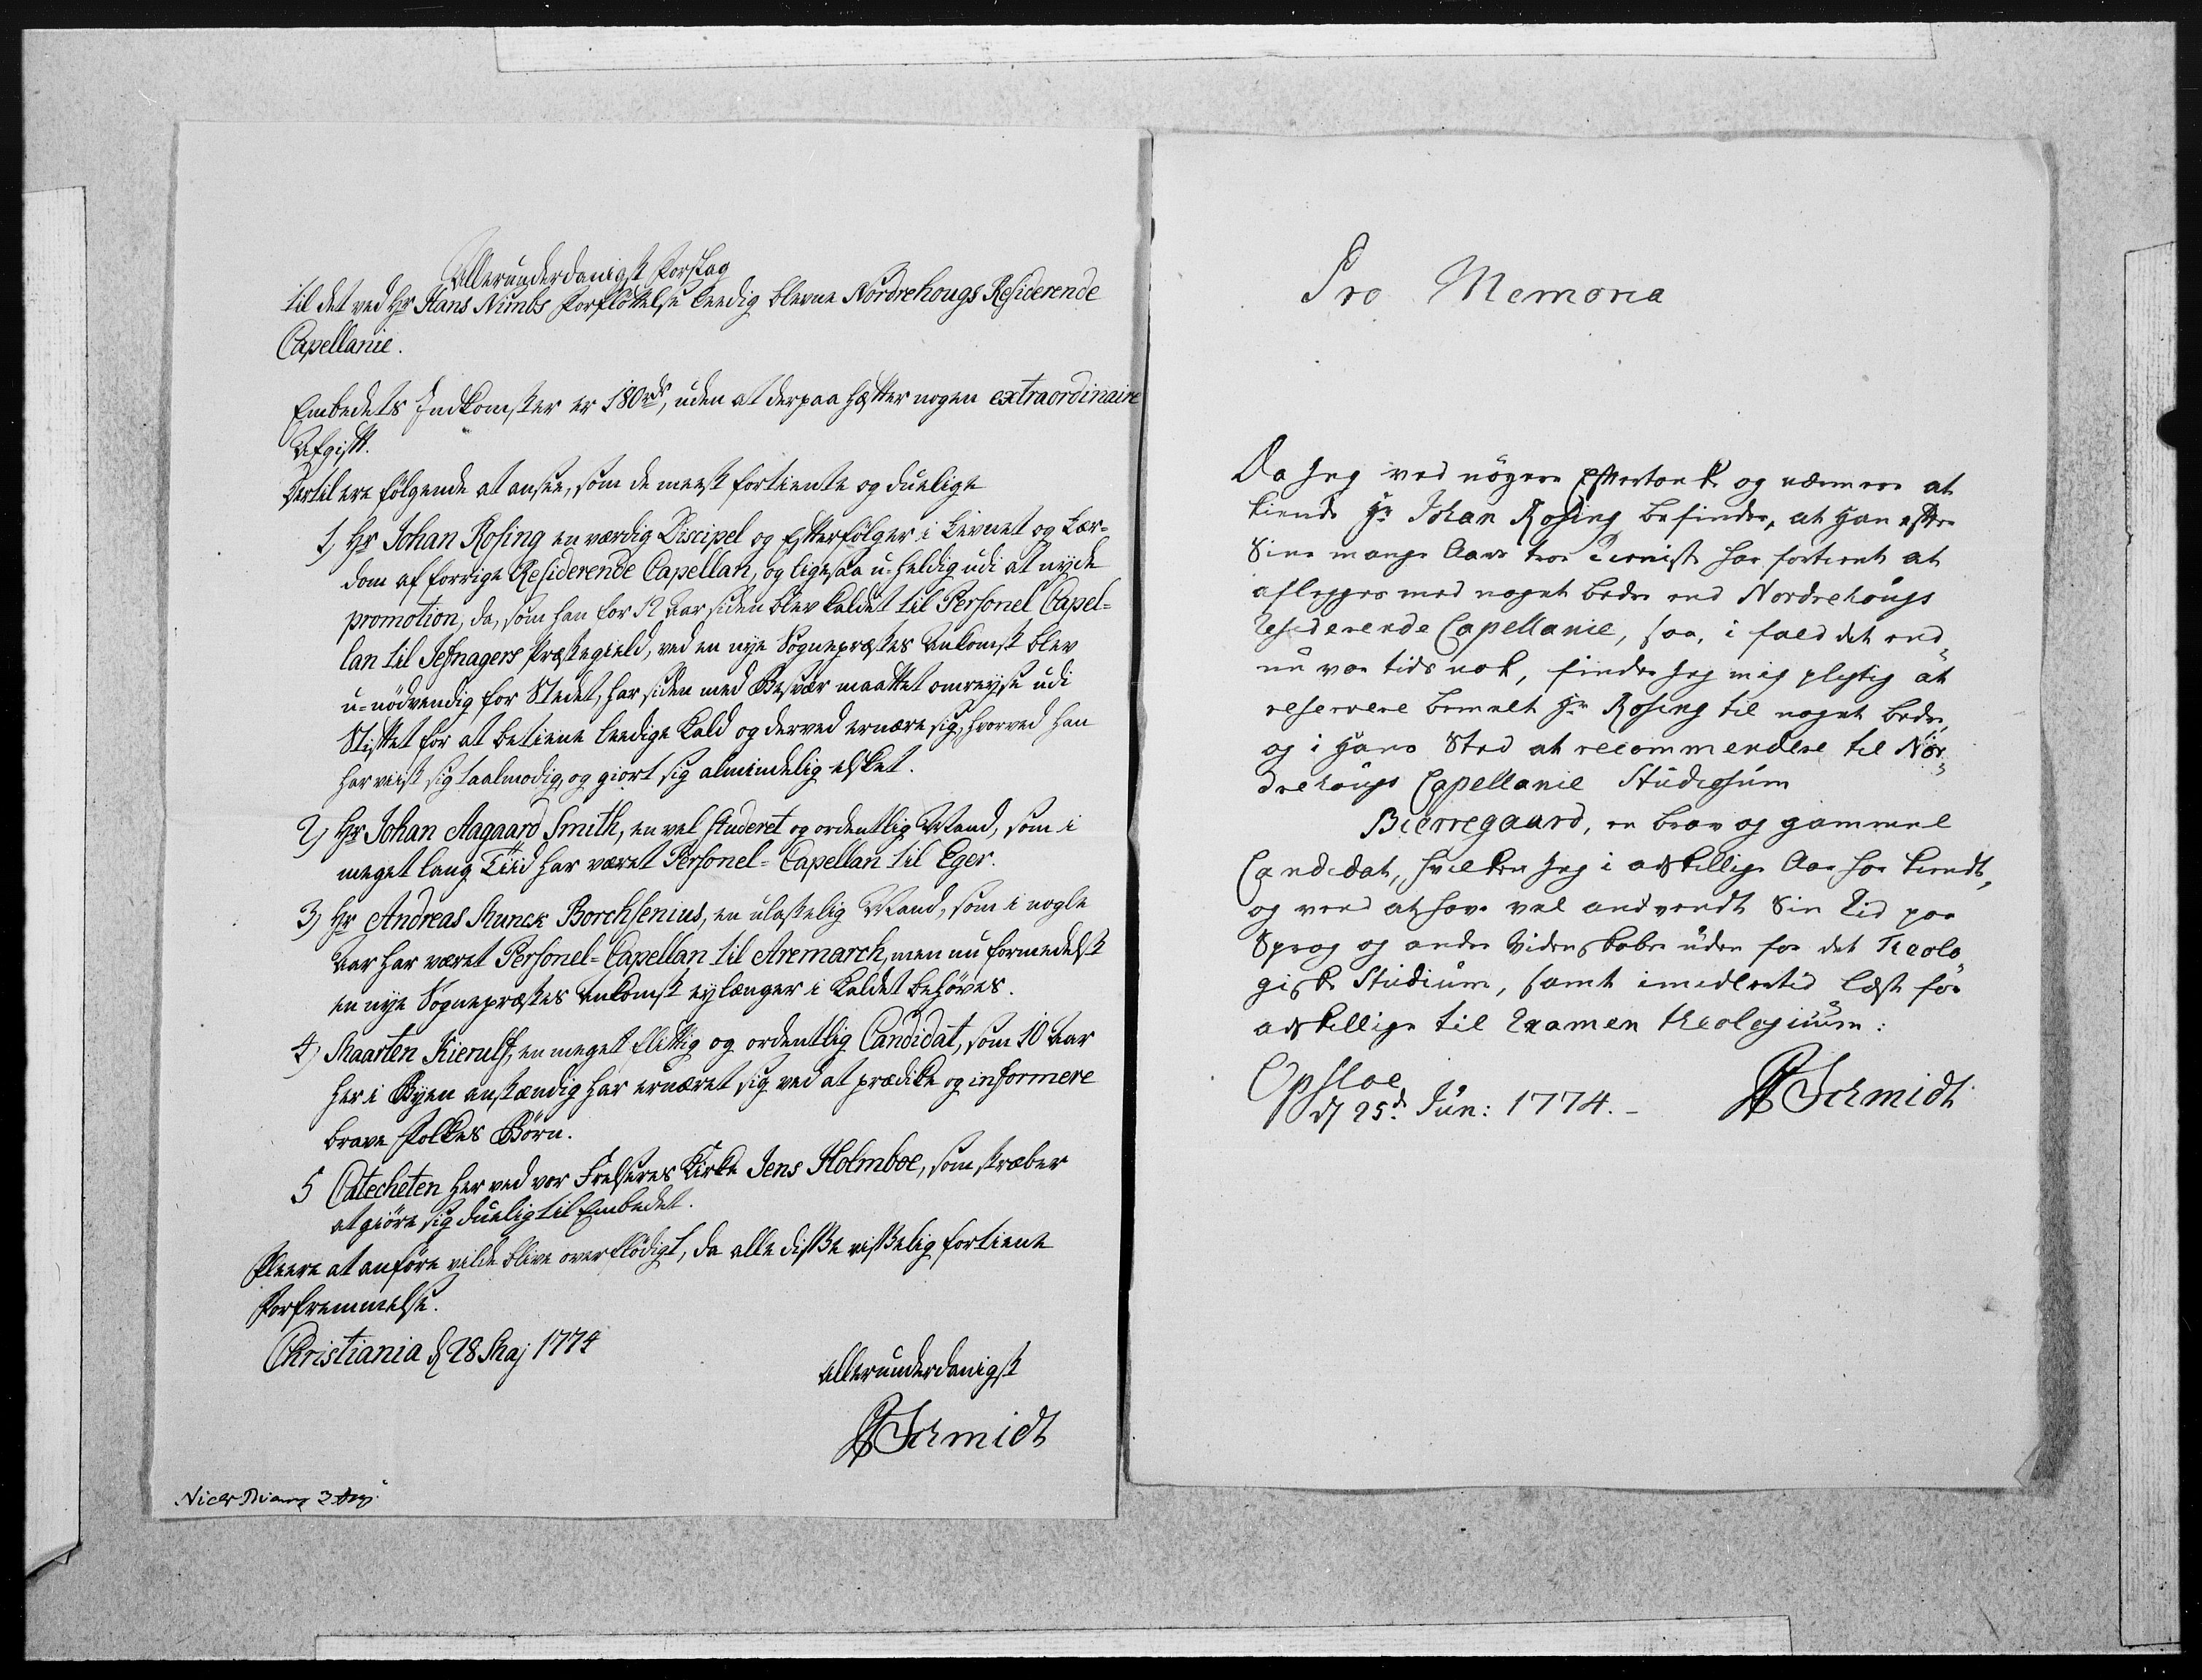 Allerunderdanigst Forslag
til det ved Hr Hans Nimbs Forflöttelse leedig blevne Nordrehougs Residerende
Capellanie.
Embedets Indkomster er 180 rd, uden at derpaa hæfter nogen extraordinaire
Afgift.
Dertil ere følgende at ansee, som de meest fortiente og duelige
1, Hr Johan Rosing en værdig Discipel og Efterfölger i Levnet og Lær-
dom af forrige Residerende Capellan, og ligesaa u-heldig udi at nyde
promotion, da, som han for 12 Aar siden blev kaldet til Personel Capel-
lan til Jefnagers Præstegield, ved en nye Sognepræstes Ankomst blev
u-nödvendig for Stedet, har siden med Besvær maattet omreyse udi
Stiftet for at betiene leedige Kald og derved ernære sig, hvorved han
har viist sig taalmodig, og giort sig almindelig elsket.
2, Hr Johan Aagaard Smith, en vel studeret og ordentlig Mand, som i
meget lang Tiid har været Personel-Capellan til Eger.
3, Hr Andreas Munck Borchsenius, en ulastelig Mand, som i nogle
Aar har været Personel-Capellan til Aremarch, men nu formedelst
en nye Sognepræstes Ankomst ey længer i Kaldet behöves.
4, Maarten Kierulf, en meget flittig og ordentlig Candidat, som 10 Aar
her i Byen anstændig har ernæret sig ved at prædike og informere
brave Folkes Börn.
5 Catecheten her ved vor Frelseres Kirke Jens Holmboe, som stræber
at giöre sig duelig til Embedet.
Fleere at anföre vilde blive overflödigt, da alle disse visselig fortiene
Forfremmelse.
Christiania d 28 Maj 1774
allerunderdanigst
FSchmidt
Pro Memoria
Da Jeg ved nöyere Eftertanke og nærmere at
kiende Hr Johan Rosing befinder, at Han efter
Sine mange Aars troe Tieniste har fortient at
aflegges med noget bedre end Nordrehougs
Residerende Capellanie, saa, i fald det end„
nu var tids nok, finder Jeg mig plegtig at
reservere bemelte Hr Rosing til noget bedre,
og i Hans Sted at recommendere til Nor„
drehougs Capellanie Studiosum
Bierregaard, en brav og gammel
Candidat, hvilken Jeg i adskillige Aar har kiendt,
og veed at have vel andvendt Sin Tid paa
Sprog og andre Videnskaber uden for det Theolo„
giske Studium, samt imedlertid læst for
adskillige til Examen theologicum:
Opsloe
d 25d Jun: 1774.-
FSchmidt